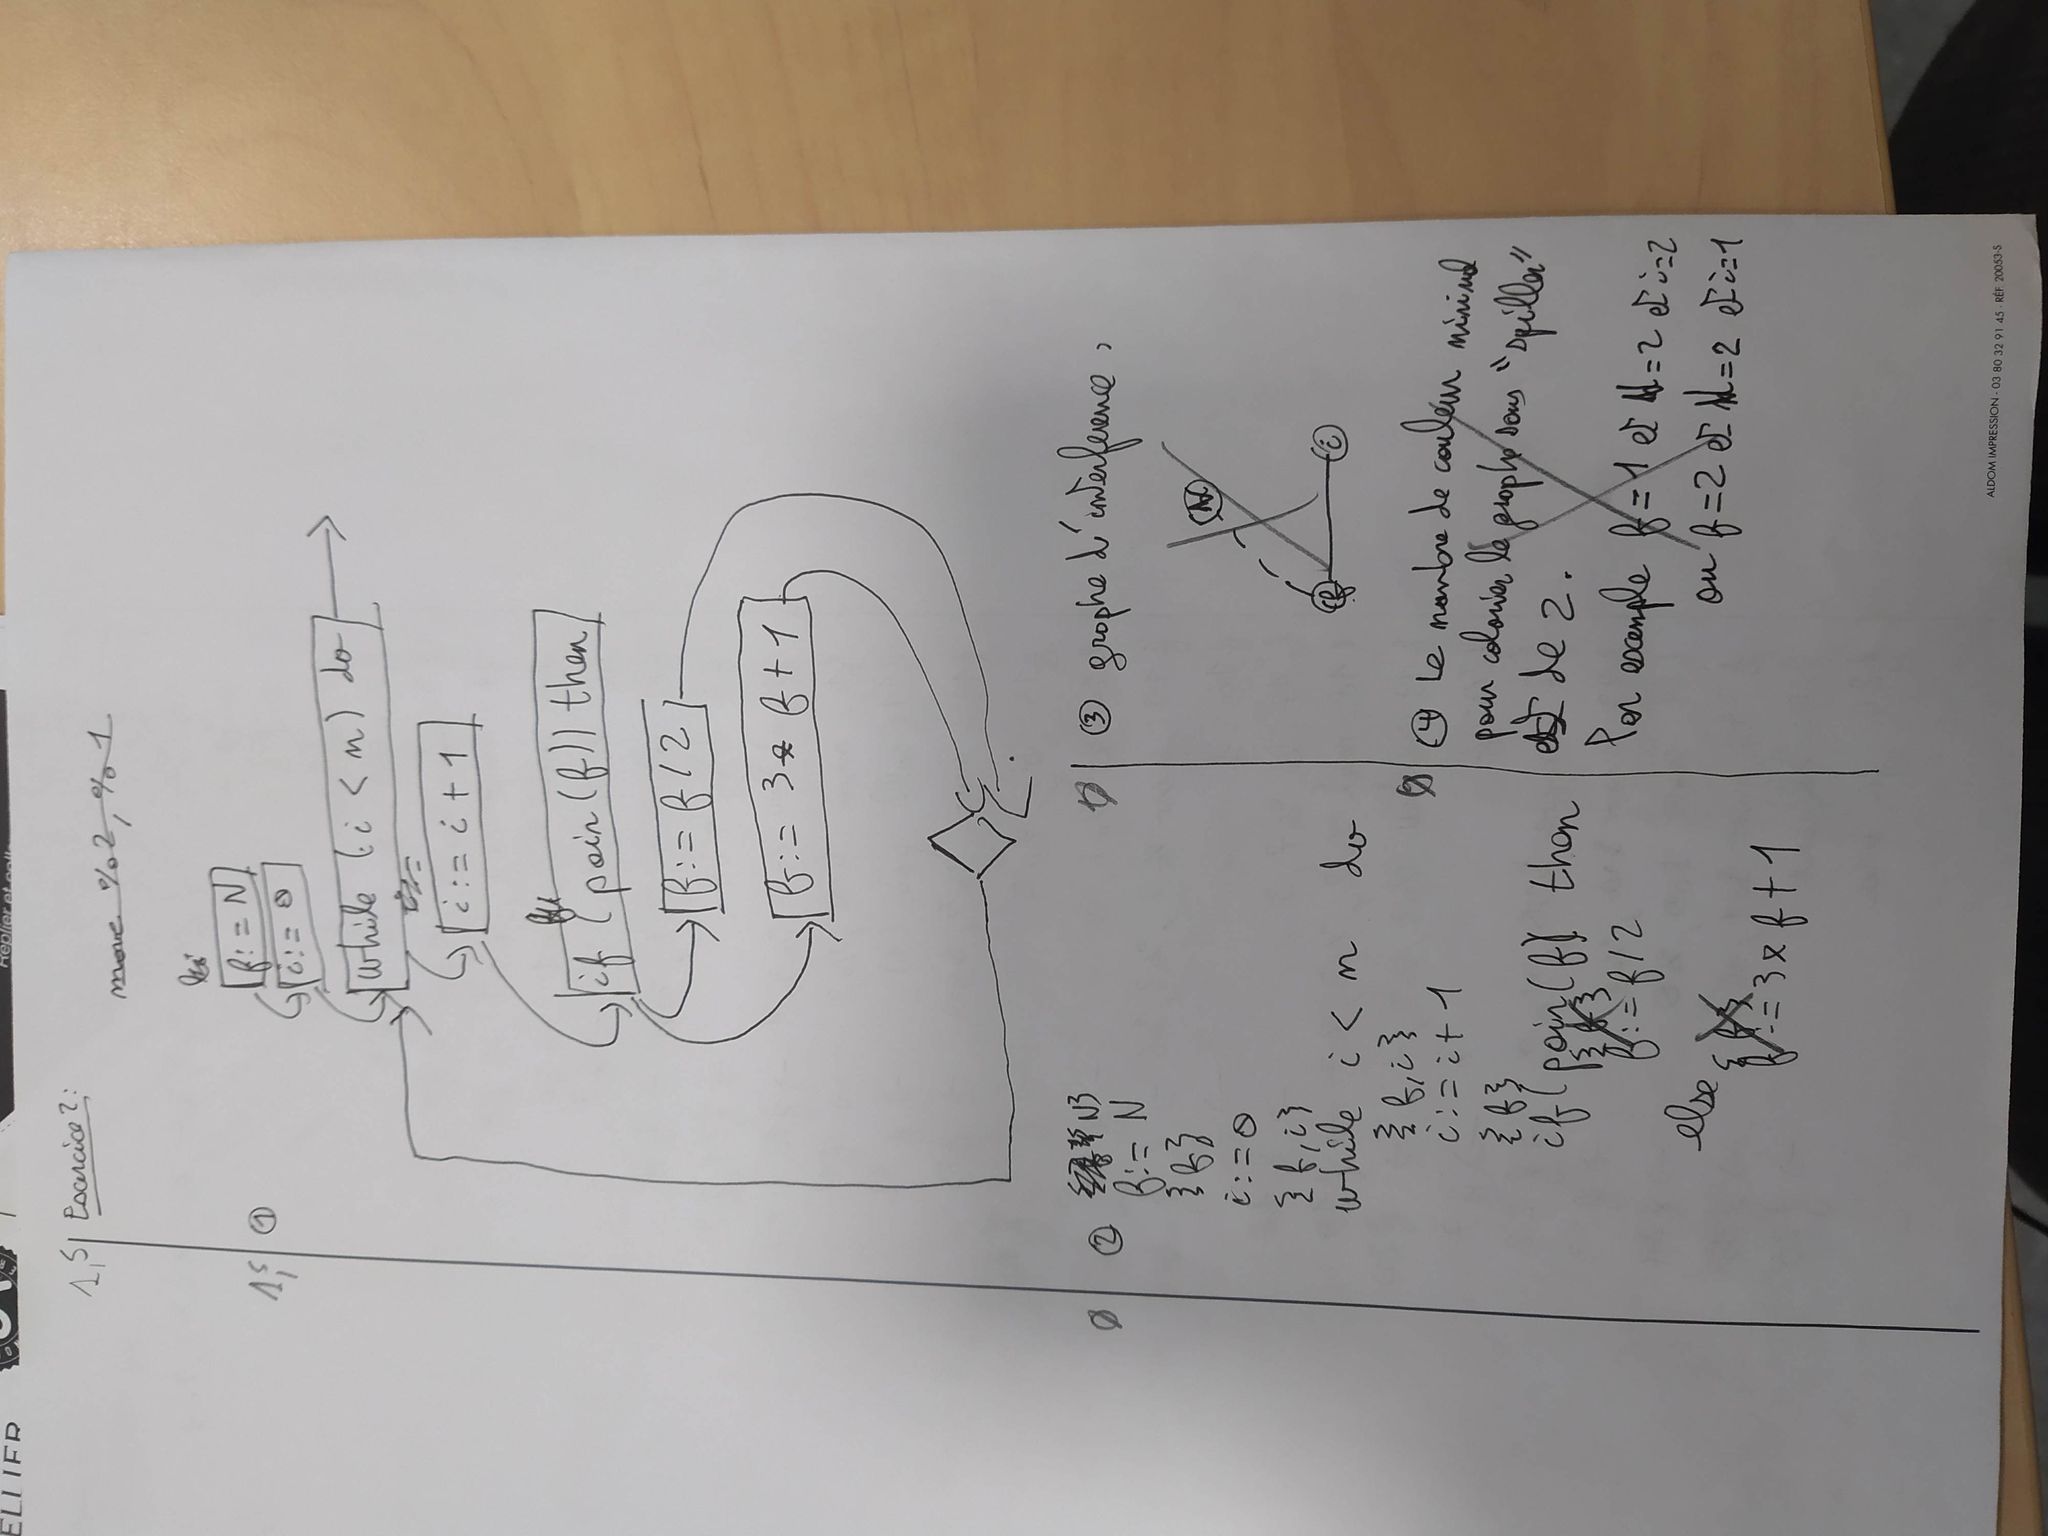 ELLIER
Replier et colle
1,5 Exercice 2 :
move %2, %1
1,5 ①
f := N
i := 0
while (i < n) do
i := i + 1
if (pair(f)) then
f := f / 2
f := 3 * f + 1
0 ②
N}
f := N
{f}
i := 0
{f, i}
while i < n do
{f, i}
i := i + 1
{f}
if (pair(f)) then
{f}
f := f / 2
else
{f}
f := 3 * f + 1
0 ③ graphe d'interference,
f i
0 ④ Le nombre de couleur minimal
pour colorier le graphe sans "spiller"
est de 2.
Par exemple f = 1 et N = 2 et i = 2
ou f = 2 et N = 2 et i = 1
ALDOM IMPRESSION - 03 80 32 91 45 - RÉF. 20053-S